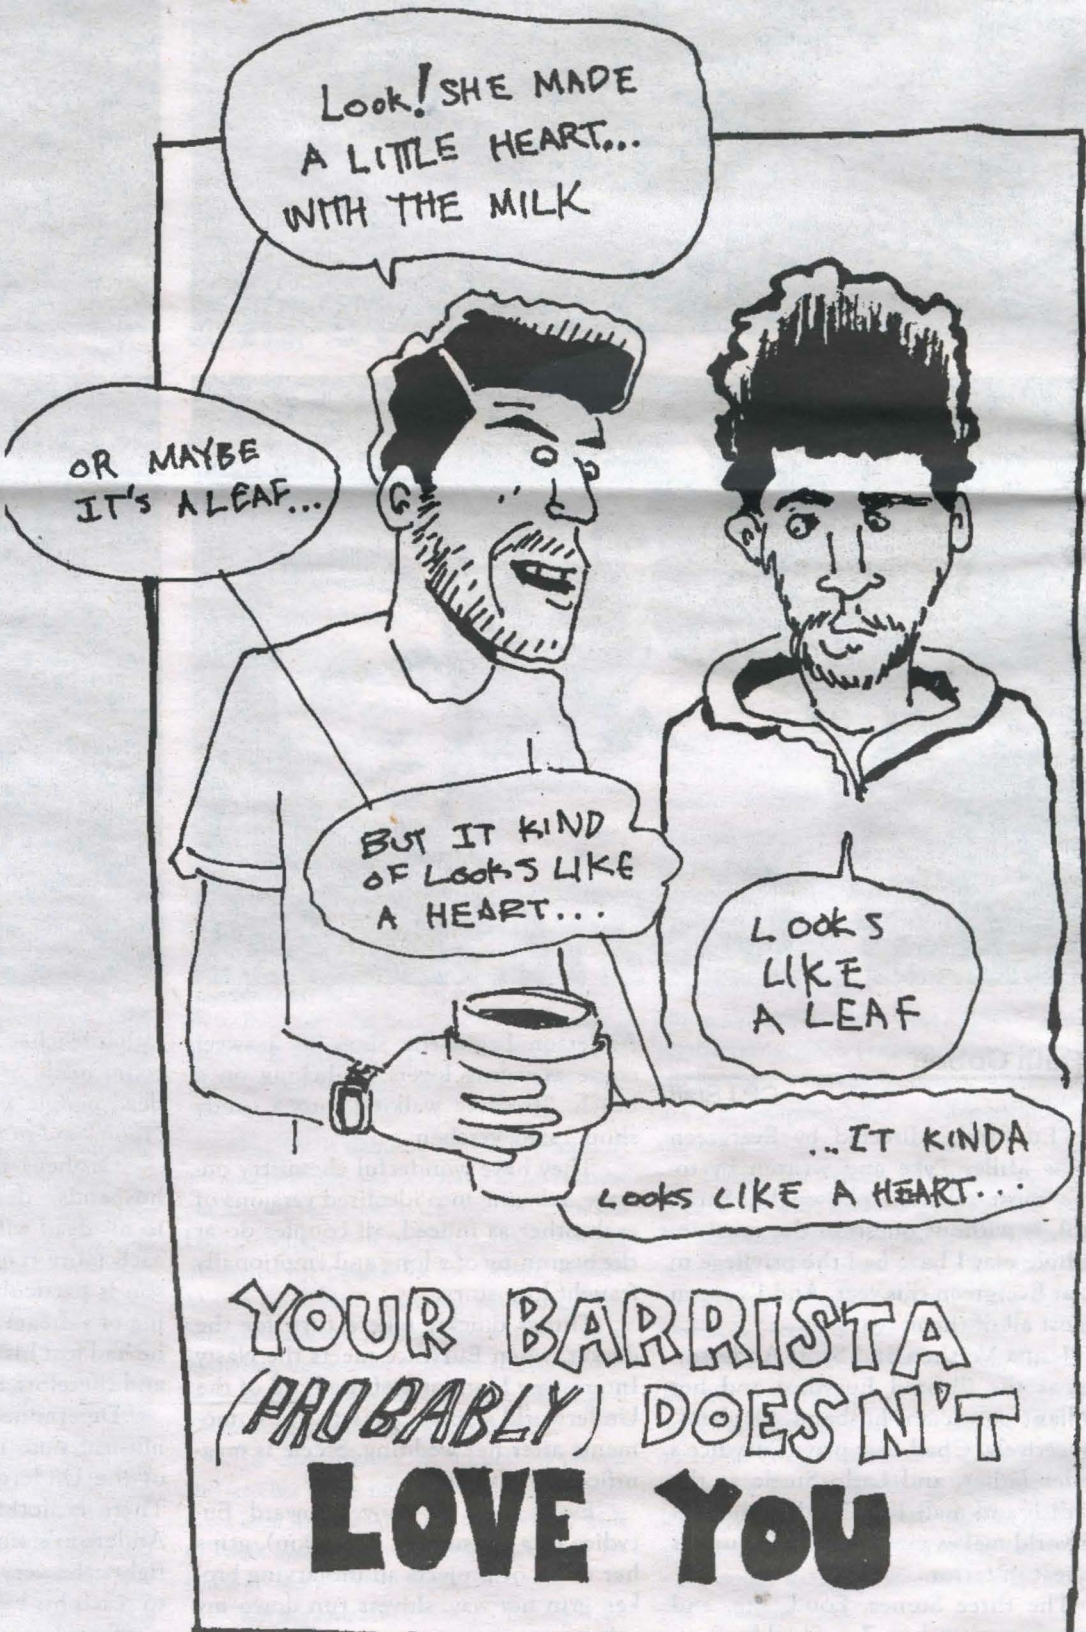 Look! SHE MADE
A LITTLE HEART...
WITH THE MILK
OR MAYBE
IT'S A LEAF...
BUT IT KIND
OF LOOKS LIKE
A HEART...
LOOKS
LIKE
A LEAF
...IT KINDA
LOOKS LIKE A HEART...
YOUR BARRISTA
(PROBABLY) DOESN'T
LOVE YOU